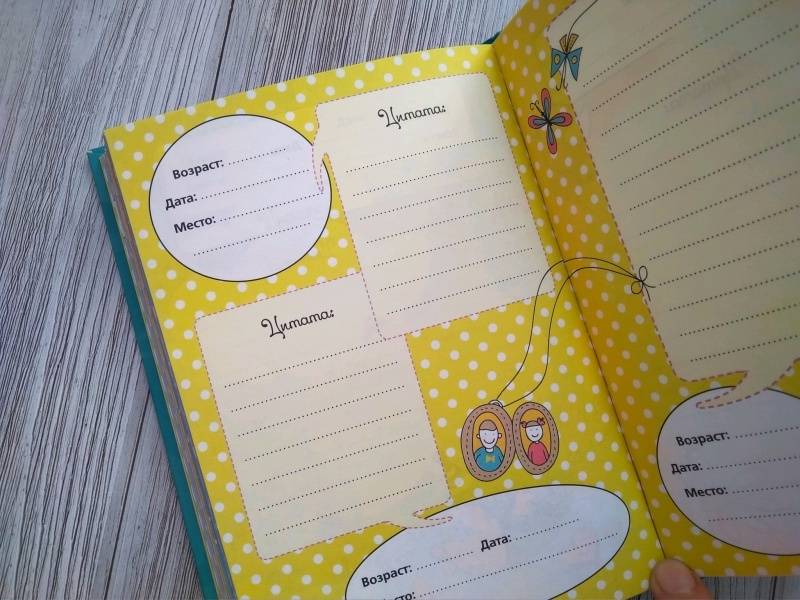 Возраст:
Дата:
Место:
Цитата:
Цитата:
Возраст: Дата:
Место:
Возраст:
Дата:
Место: